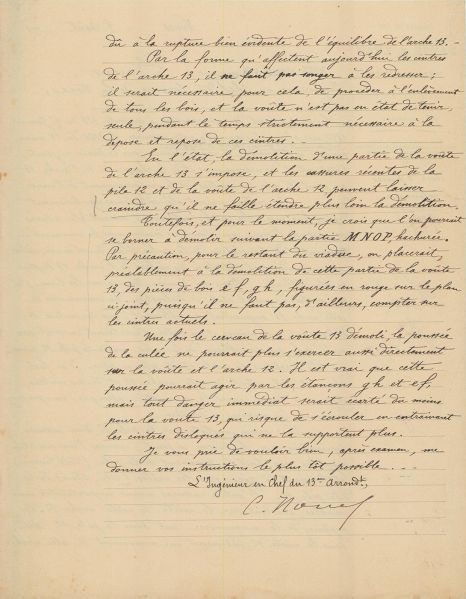 dû à la rupture bien évidente de l'équilibre de l'arche 13. —
Par la forme qu'affectent aujourd'hui les cintres
de l'arche 13, il ne faut pas songer à les redresser ;
il serait nécessaire pour cela, de procéder à l'enlèvement
de tous les bois, et la voûte n'est pas en état de tenir
seule, pendant le temps strictement nécessaire à la
dépose et repose de ces cintres. _
En l'état, la démolition d'une partie de la voûte
de l'arche 13 s'impose, et les cassures récentes de la
pile 12 et de la voûte de l'arche 12 peuvent laisser
craindre qu'il ne faille étendre plus loin la démolition.
Toutefois, et pour le moment, je crois que l'on pourrait
se borner à démolir suivant la partie MNOP, hachurée.
Par précaution, pour le restant du viaduc, on placerait,
préalablement à la démolition de cette partie de la voûte
13, des pièces de bois e f, g h, figurées en rouge sur le plan
ci-joint, puisqu'il ne faut pas, d'ailleurs, compter sur
les cintres actuels.
Une fois le cerveau de la voûte 13 démoli, la poussée
de la culée ne pourrait plus s'exercer aussi directement
sur la voûte et l'arche 12. Il est vrai que cette
poussée pourrait agir par les étançons g h et e f,
mais tout danger immédiat serait écarté du moins
pour la voûte 13, qui risque de s'écrouler en entraînant
les cintres disloqués qui ne la supportent plus.
Je vous prie de vouloir bien, après examen, me
donner vos instructions le plus tôt possible . . .
L'Ingénieur en Chef du 13me Arrondt,